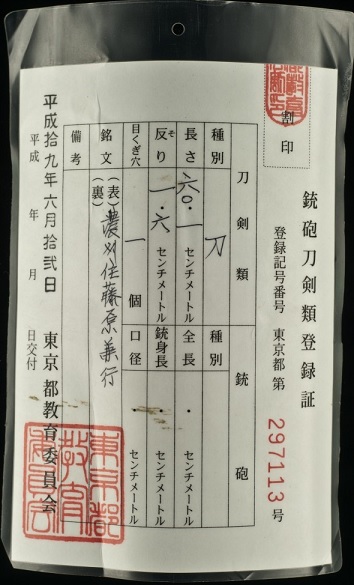 銃砲刀剣類登録証
割印
登録記号番号 東京都 第 297113 号
刀剣類
種別 刀
長さ 六〇・一 センチメートル
反り 一・六 センチメートル
そ
目くぎ穴 一 個
銘文 (表) 濃州住藤原兼行
(裏)
備考
銃砲
種別
全長 ・ センチメートル
銃身長 ・ センチメートル
口径 ・ センチメートル
平成拾九年六月拾弐日
平成 年 月 日交付
東京都教育委員会
東京都教育委員会